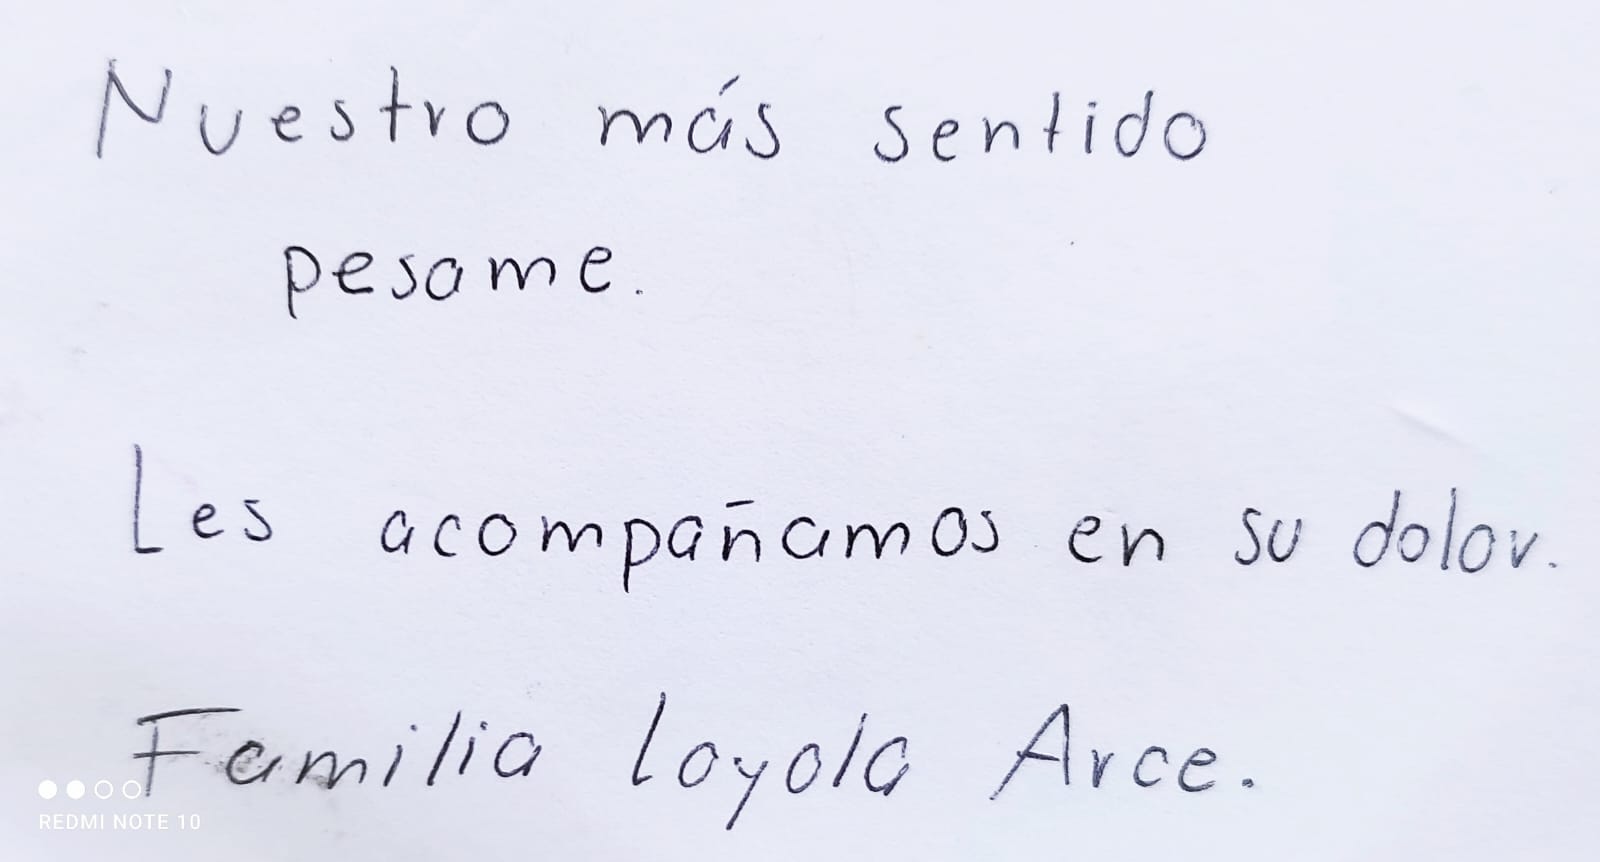 Nuestro más sentido
pesame.
Les acompañamos en su dolor.
Familia Loyola Arce.
REDMI NOTE 10